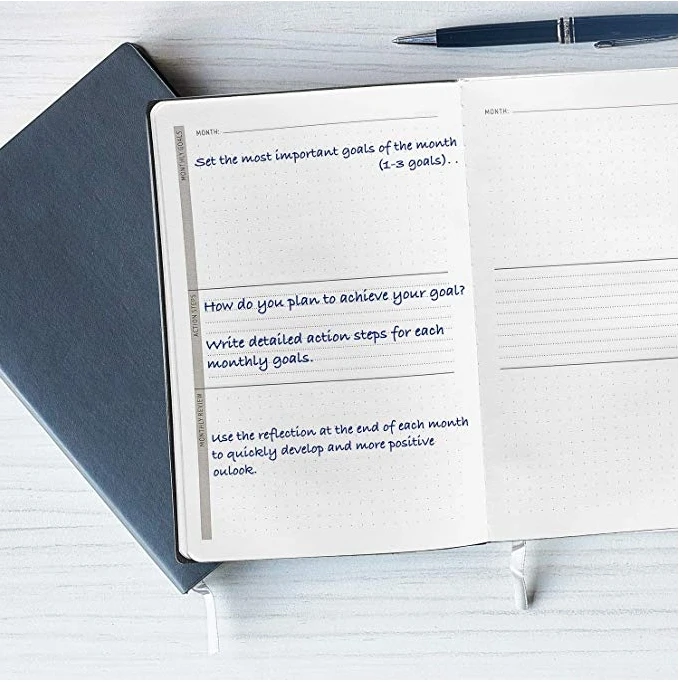 MONTHLY GOALS
MONTH:
Set the most important goals of the month
(1-3 goals). .
ACTION STEPS
How do you plan to achieve your goal?
Write detailed action steps for each
monthly goals.
MONTHLY REVIEW
use the reflection at the end of each month
to quickly develop and more positive
oulook.
MONTH: